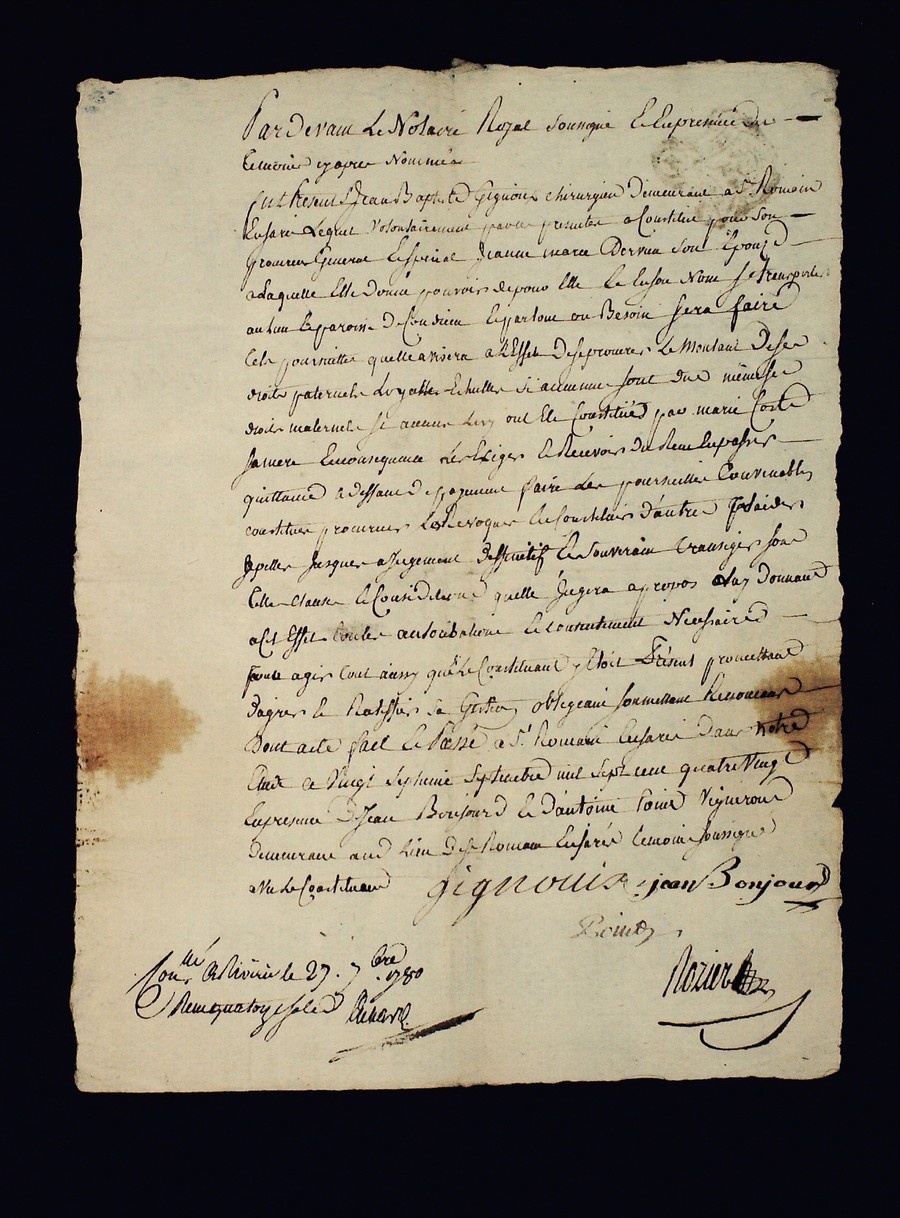 Pardevant Le Notaire Royal soussigné Et En presence de
temoins cy apres Nommés
fut Present Sr Jean Baptiste Gignoux chirurgien demeurant a St Romain
En Jaré Lequel volontairement par ces presentes a Constitué pour son
procureur General Et special Jeanne marie Dervieu son Epouse
a Laquelle Elle donne pouvoir de pour Elle Et En son Nom se transporter
au Lieu Et paroisse de Condrieu Et partout ou Besoin sera faire
telles poursuittes quelle avisera a L'Effet de se procurer Le Montant de ses
droits paternels si aucuns sont dus même ses
droits maternels si aucuns Luy ont Eté Constitués par marie
sa mere En consequance Les Exiger Et Recevoir du Recu En passer
quittance a deffaut de payement faire Les poursuittes Convenables
constituer procureurs Les Revoquer En Constituer d'autres plaider
apeller jusques a jugement deffinitif Et souverain transiger sous
telle clause Et Considerations quelle jugera a propos Luy Donnant
a Cet Effet toutes autorisations Et consentement Necessaires
pour agir tout ainsy que Le Constituant y Etoit Present promettant
dagreer Et Ratiffier sa Gestion obligeant soumettant Renonceant
Dont acte fait Et Passé a St Romain En Jaré dans Notre
Etude ce vingt Septieme Septembre mil Sept cent quatre vingt
En presence de Jean Bonjour Et d'antoine Poind Vignerons
demeurant aud Lieu de St Romain En Jaré temoins soussignés
avec Le Constituant gignoux jean Bonjour
Poind
Rozier
Conlé A Rivirie le 27. 7bre 1780
Recu quatorze sols